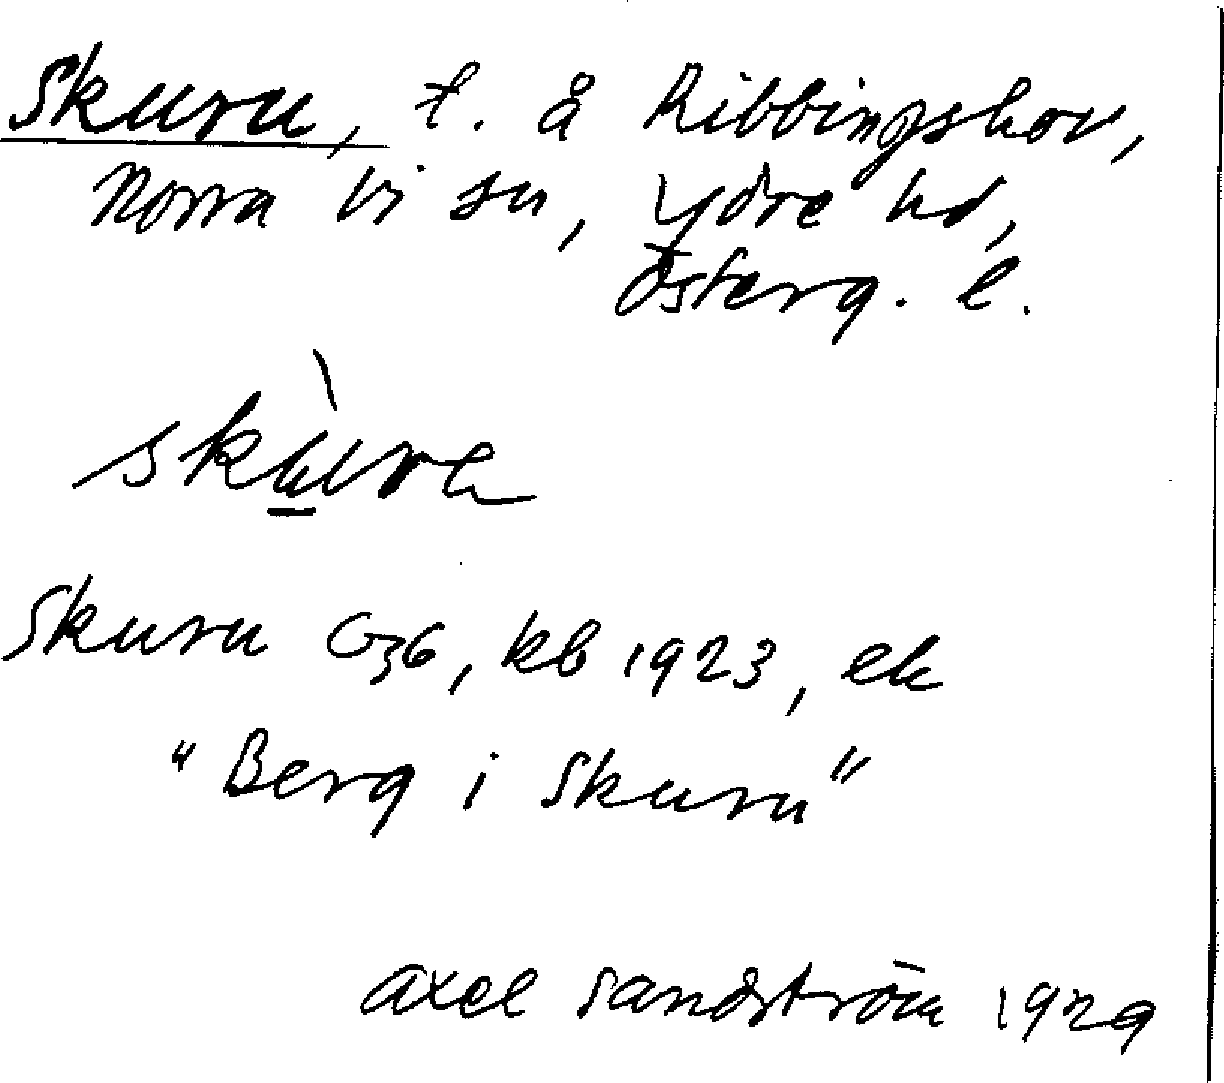 Skuru, t. å Ribbingshov,
Norra Vi sn, Ydre hd,
Österg. l.
Skuru G36, kb 1923, ek
"Berg i Skuru"
Axel Sandström 1929